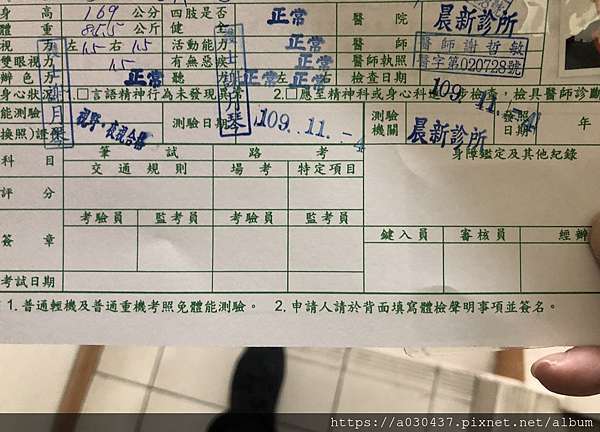 身 高 169 公分 四肢是否 正常 醫 院 晨新診所
體 重 85.5 公斤 健 全
視 力 左 1.5 右 1.5 活動能力 正常 醫 師 醫師謝哲敏
雙眼視力 1.5 有無惡疾 正常 醫師執照 醫字第020728號
辨 色 力 正常 聽 力 左 正常 右 檢查日期 109. 11. -4
身心狀況 □言語精神行為未發現異常 2.□應至精神科或身心科進一步檢查,檢具醫師診斷
能測驗 視野、夜視合格 測驗日期 109. 11. -4 測驗 晨新診所 發照 年
換照)證 機關
科 目 筆 試 路 考 身障鑑定及其他紀錄
交 通 規 則 場 考 特定項目
評 分
考驗員 監考員 考驗員 監考員
簽 章 鍵入員 審核員 經辦
考試日期
1.普通輕機及普通重機考照免體能測驗。 2.申請人請於背面填寫體檢聲明事項並簽名。
https://a030437.pixnet.net/album